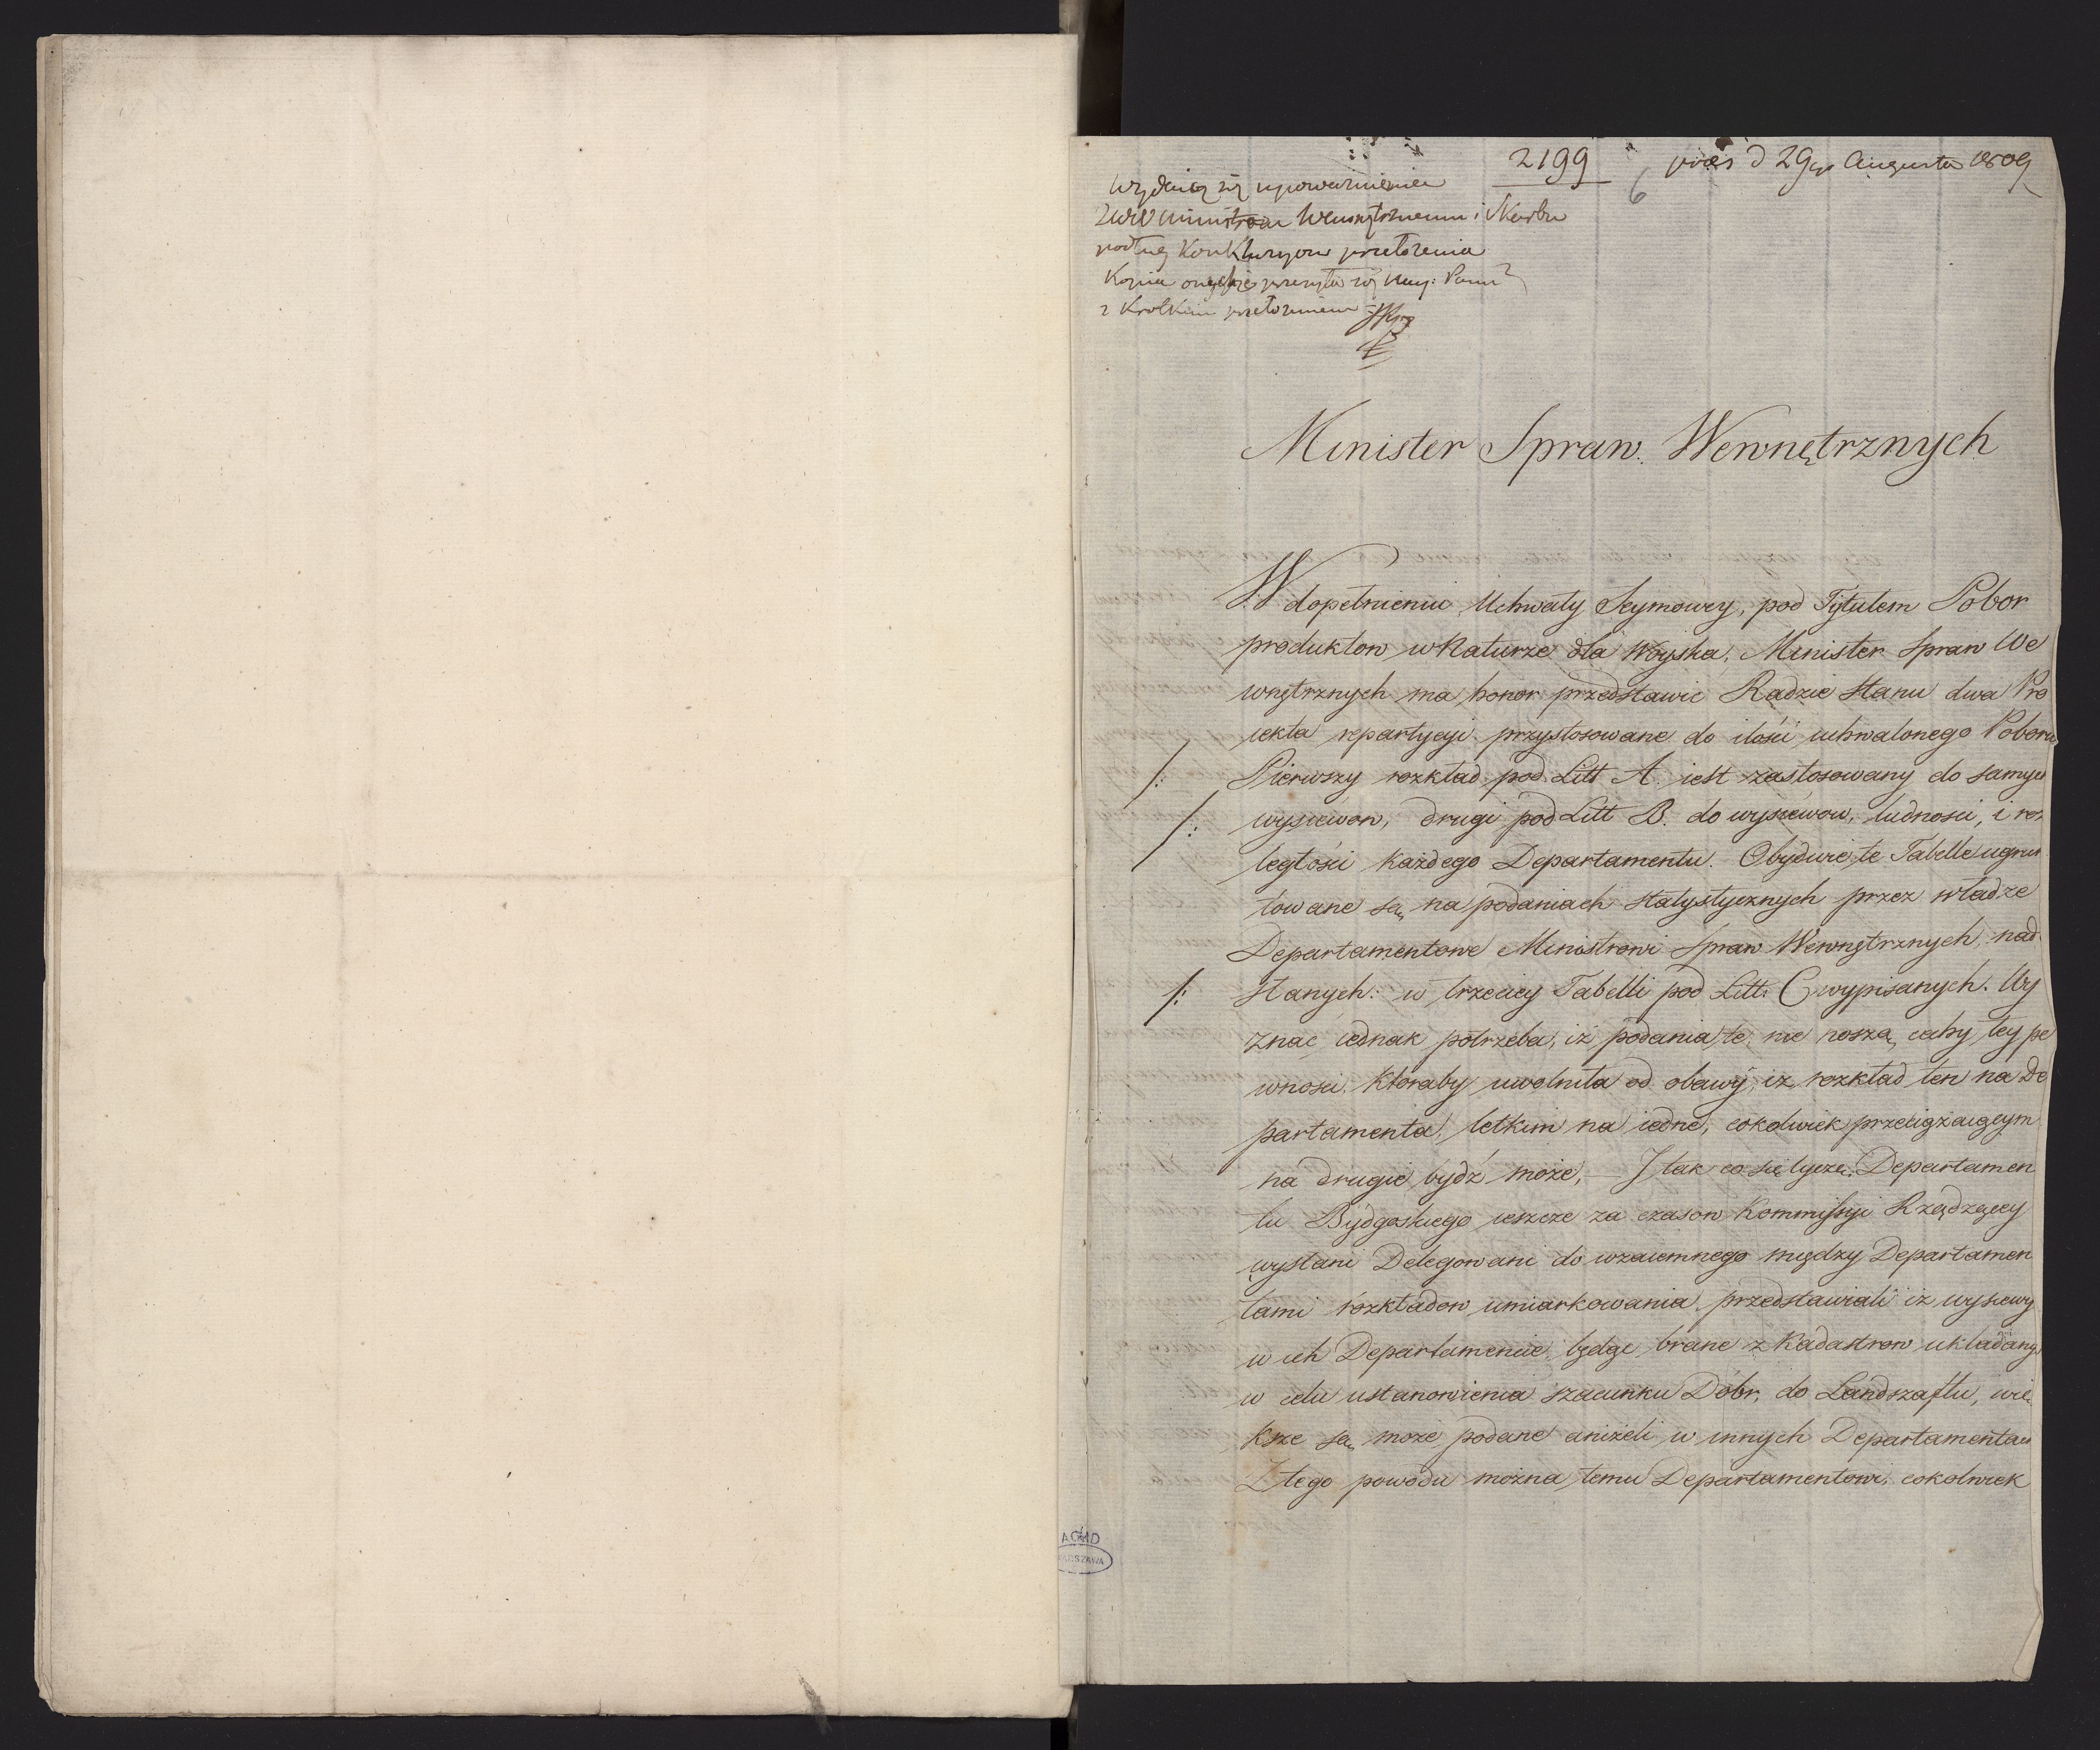 2199
6
præs d 29go Augusta 1809
wydaią się upoważnienia
Ministrom Wewnętrznemu i Skarbu
podług Konkluzyow przełożenia
Kopia onychże przesyła się Nay: Panu
z krótkim przełożeniem
Minister Spraw Wewnętrznych
W dopełnieniu Uchwały Seymowey, pod Tytułem Pobor
produktow w Naturze dla Woyska, Minister Spraw We
wnętrznych ma honor przedstawic Radzie Stanu dwa Pro
iekta repartycyi przystosowane do ilości uchwalonego Poboru
/: Pierwszy rozkład pod Litt A. iest zastosowany do samych
/: wysiewow, drugi pod Litt B. do wysiewow, ludnosci, i roz
ległości każdego Departamentu. Obydwie te Tabelle ugrun
towane są na podaniach statystycznych przez władze
Departamentowe Ministrowi Spraw Wewnętrznych nad
/: słanych: w trzeciey Tabelli pod Litt: C wypisanych. Wy
znać iednak potrzeba, iż podania te, nie noszą cechy tey pe
wnosci, ktoraby uwolniła od obawy, iż rozkład ten na De
partamenta, letkim na iedne, cokolwiek przeciążaiącym
na drugie bydź może, – I tak co się tycze Departamen
tu Bydgoskiego ieszcze za czasow Kommissyi Rządzącey
wysłani Delegowani do wzaiemnego między Departamen
tami rozkładow umiarkowania, przedstawiali iż wysiewy
w ich Departamencie, będąc brane z Kadastrow układanych
w celu ustanowienia szacunku Dobr, do Landszaftu, wię
ksze są może podane aniżeli w innych Departamentach
Z tego powodu można temu Departamentowi, cokolwiek
AGAD
WARSZAWA